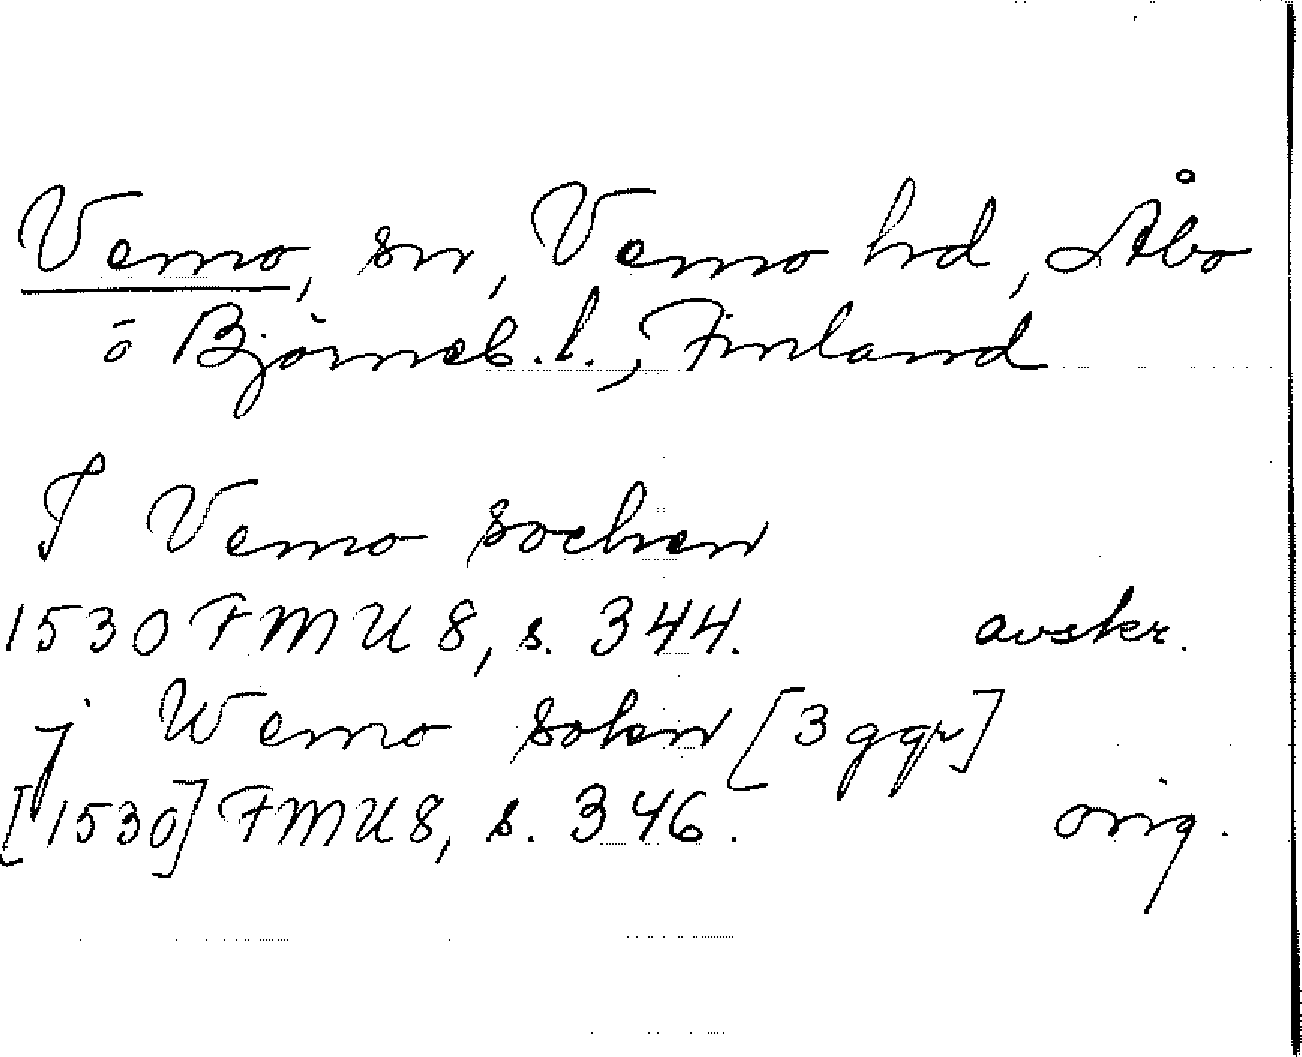 Vemo, sn, Vemo hd, Åbo
o Björneb. l., Finland
J Vemo sochen
1530 FMU 8, s. 344. avskr.
j Wemo sokn [3 ggr]
[1530] FMU 8, s. 346. orig.